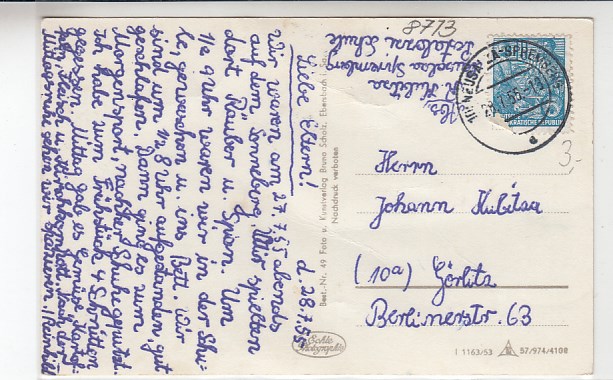 8773
d. 28.7.55
Liebe Eltern!
Wir waren am 27.7.55 abends
auf dem Sonneberg. Wir spielten
dort Räuber u. Spion. Um
1/2 9 Uhr waren wir in der Schu-
le, gewaschen u. ins Bett. Wir
sind um 1/2 8 Uhr aufgestanden, gut
geschlafen. Dann ging es zum
Morgensport, nachher Schuhe geputzt.
Ich habe zum Frühstück 4 Schnitten
gegessen. Mittag gab es Gemüse, Kartof-
Mittagsruhe gehen wir spazieren.
Abs.
Kubitza
Neusalza Spremberg
Pestalozzi Schule
Best.-Nr. 49 Foto u. Kunstverlag Bruno Scholz, Ebersbach i. Sa.
Nachdruck verboten
Echte
Photographie
NEUSALZA-SPREMBERG
KRATISCHE REPUBLIK
3,-
Herrn
Johann Kubitza
(10a) Görlitz
Berlinerstr. 63
I 1163/53 57/974/4108